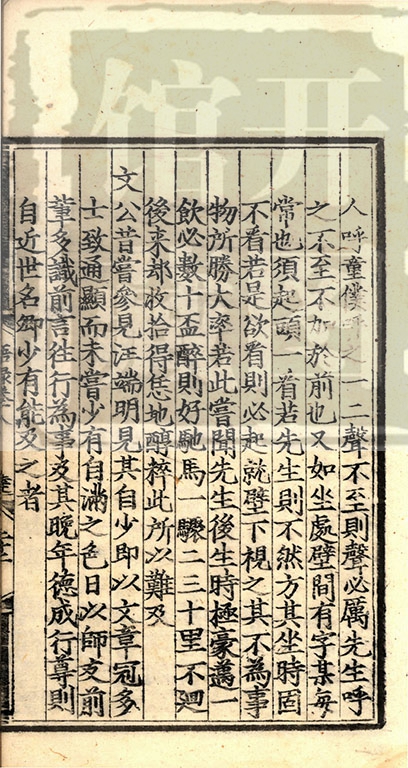 人呼童僕呼之一二聲不至則聲必厲先生呼
之不至不加於前也又如坐處壁間有字某每
常也須起頭一看若先生則不然方其坐時固
不看若是欲看則必起就壁下視之其不為事
物所勝大率若此嘗聞先生後生時極豪邁一
飲必數十盃醉則好馳馬一驟二三十里不廻
後來却收拾得恁地醇粹此所以難及
文公昔嘗參見汪端明見其自少即以文章冠多
士致通顯而未嘗少有自滿之色日以師友前
輩多識前言往行為事及其晚年德成行尊則
自近世名卿少有能及之者